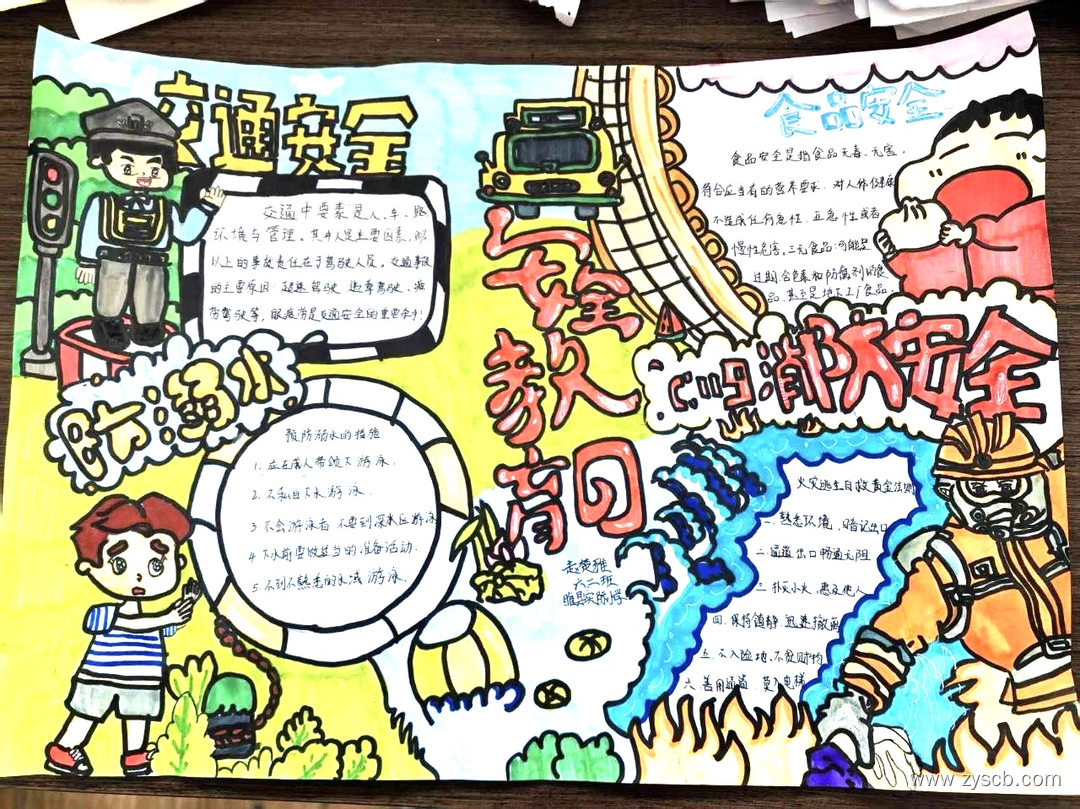 交通安全
交通中要素是人、车、路
环境与管理。其中人是主要因素,
以上的事故责任在于驾驶人员。交通事故
的主要原因:超速驾驶 酒驾驶、疲
劳驾驶等,
交通安全的重要
防溺水
预防溺水的措施
1. 应在成人带领下游泳.
2. 不私自下水游泳.
3 不会游泳者 不要到深水区游泳
4 下水前要做适当的准备活动.
5. 不到不熟悉的水域 游泳.
安全教育
六二班
食品安全
食品安全是指食品无毒、无害,
符合应当有的营养要求, 对人体健康
不造成任何急性、亚急性或者
慢性危害,三无食品:可能是
过期.含色素和防腐剂的食
品,甚至是地下工厂食品,
消防安全
火灾逃生自救黄金法则
一. 熟悉环境、暗记出口
二. 通道出口畅通无阻
三. 扑灭小火 惠及他人
四. 保持镇静 迅速撤离
五. 不入险地、不贪财物
六. 善用通道 莫入电梯
www.zyscb.com